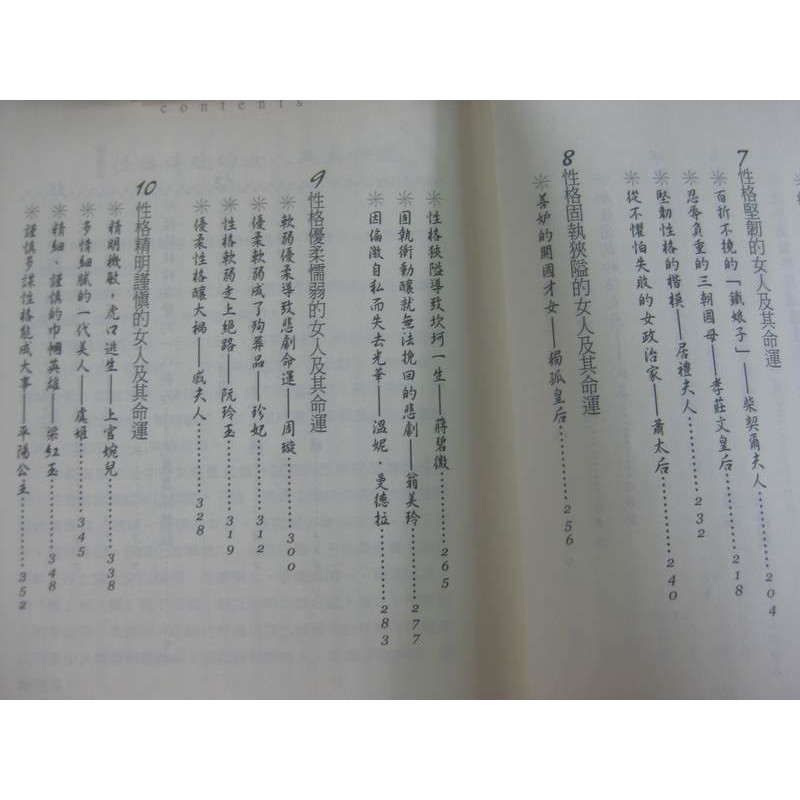 contents
7 性格堅韌的女人及其命運
＊百折不撓的「鐵娘子」——柴契爾夫人………204
＊忍辱負重的三朝國母——孝莊文皇后………218
＊堅韌性格的楷模——居禮夫人………232
＊從不懼怕失敗的女政治家——蕭太后………240
8 性格固執狹隘的女人及其命運
＊善妒的開國才女——獨孤皇后………256
＊性格狹隘導致坎坷一生——蔣碧微………265
＊固執衝動釀就無法挽回的悲劇——翁美玲………277
＊因偏激自私而失去光華——溫妮．曼德拉………283
9 性格優柔懦弱的女人及其命運
＊軟弱優柔導致悲劇命運——周璇………300
＊優柔軟弱成了殉葬品——珍妃………312
＊性格軟弱走上絕路——阮玲玉………319
＊優柔性格釀大禍——戚夫人………328
10 性格精明謹慎的女人及其命運
＊精明機敏，虎口逃生——上官婉兒………338
＊多情細膩的一代美人——虞姬………345
＊精細、謹慎的巾幗英雄——梁紅玉………348
＊謹慎多謀性格能成大事——平陽公主………352